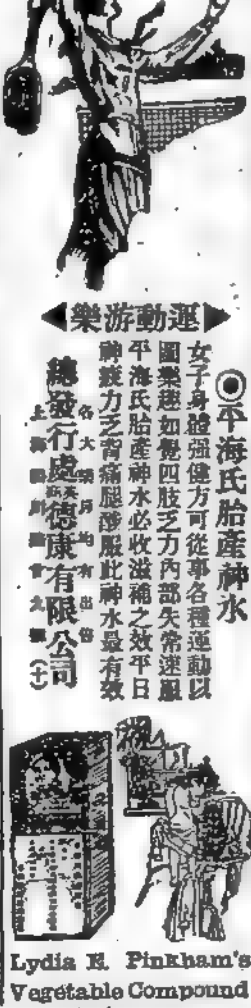 樂游動運
◉平海氏胎產神水
女子身體强健方可從事各種運動以
圖樂趣如覺四肢乏力內部失常速服
平海氏胎產神水必收滋補之效平日
神疲力乏背痛腿酸服此神水最有效
各大藥房均有出售
總發行處英商德康有限公司
上海
Lydia E. Pinkham's
Vegetable Compound